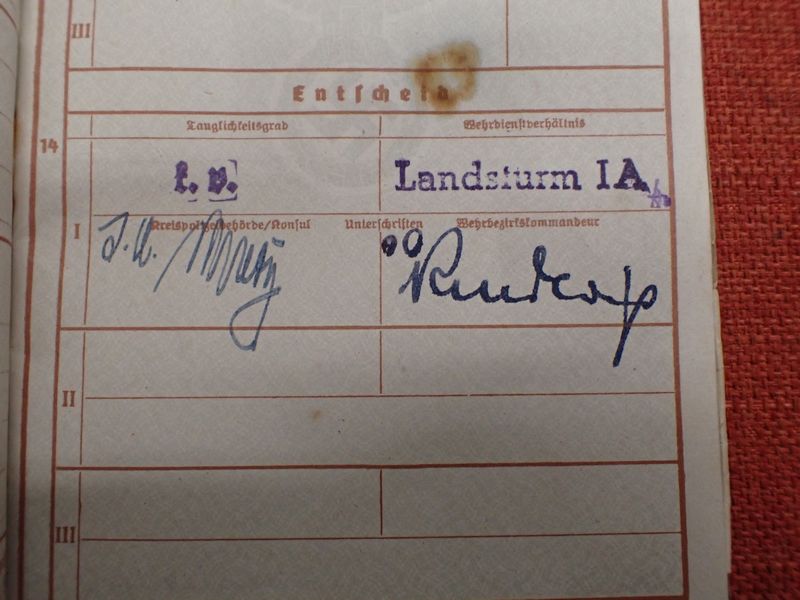 III
Entscheid
Tauglichkeitsgrad Wehrdienstverhältnis
14
k. v. Landsturm I A
I Kreispolizeibehörde/Konsul Unterschriften Wehrbezirkskommandeur
II
III